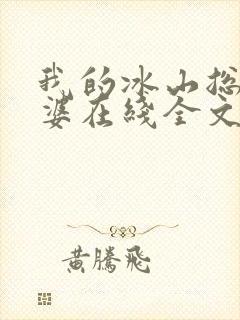 我的冰山总
婆在线全文
黄腾飞